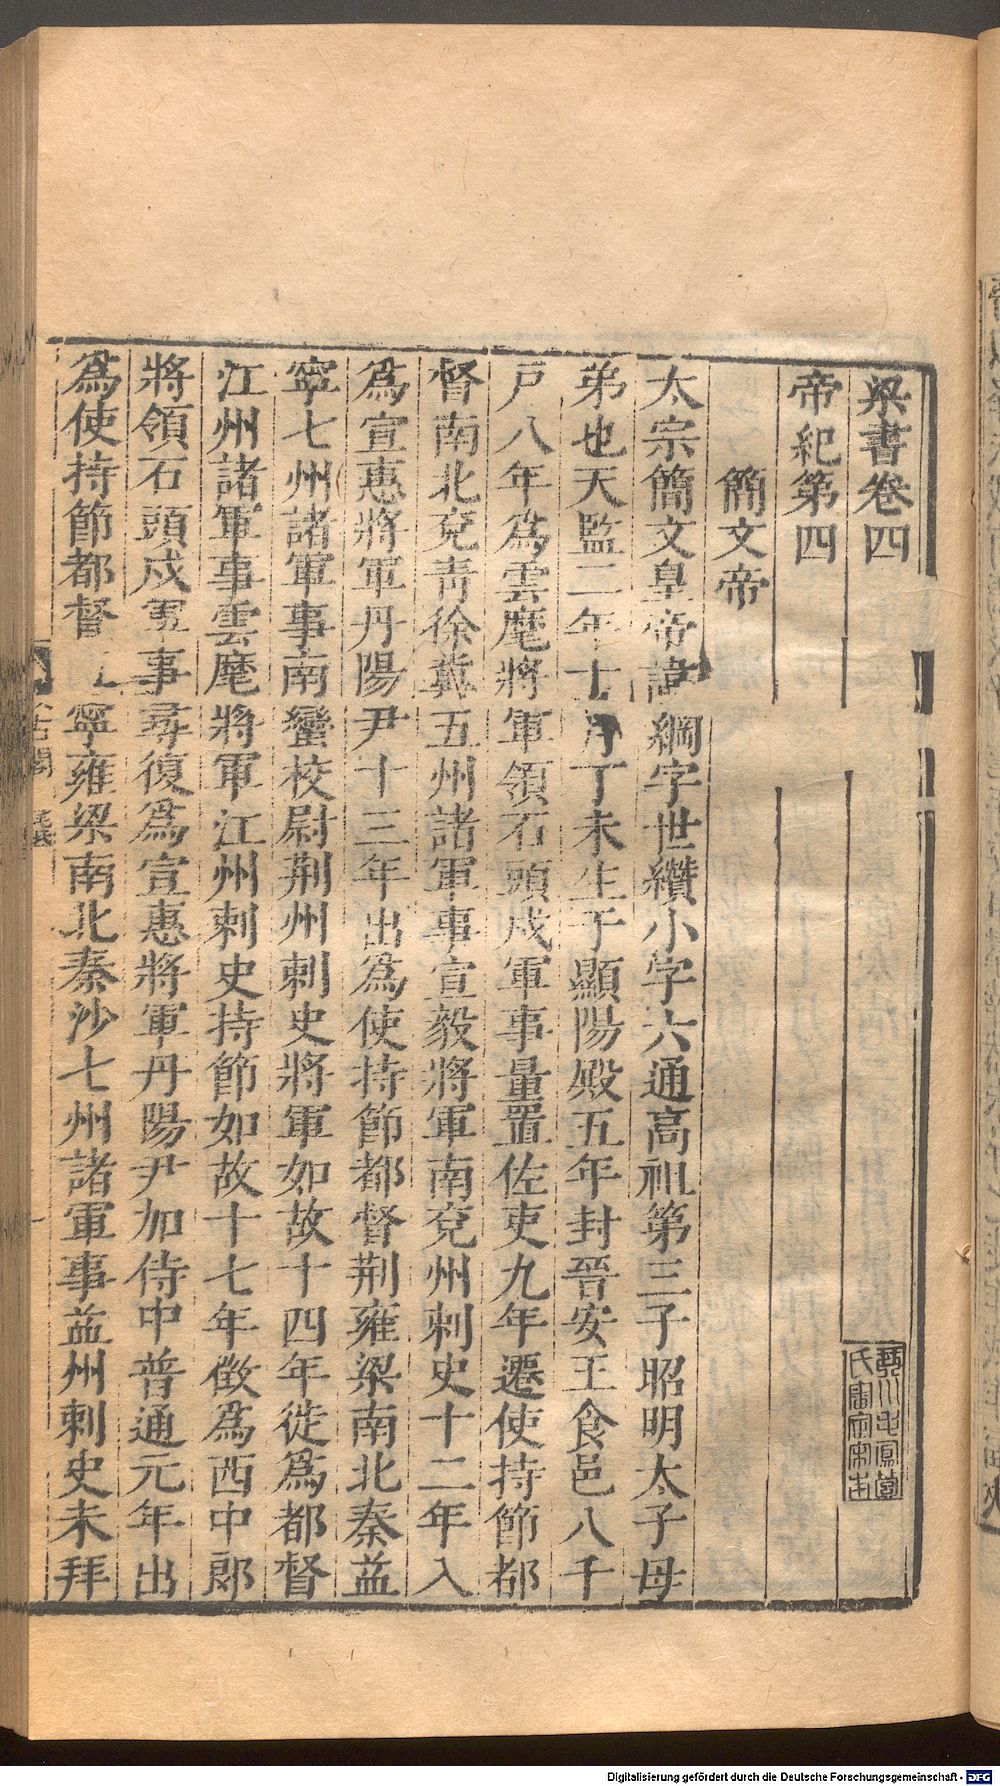 梁書卷四
帝紀第四
簡文帝
太宗簡文皇帝諱綱字世纘小字六通高祖第三子昭明太子母
弟也天監二年十月丁未生于顯陽殿五年封晉安王食邑八千
戸八年爲雲麾將軍領石頭戍軍事量置佐吏九年遷使持節都
督南北兗青徐冀五州諸軍事宣毅將軍南兗州刺史十二年入
爲宣惠將軍丹陽尹十三年出爲使持節都督荆雍梁南北秦益
寧七州諸軍事南蠻校尉荆州刺史將軍如故十四年徙爲都督
江州諸軍事雲麾將軍江州刺史持節如故十七年徴爲西中郎
將領石頭戍軍事尋復爲宣惠將軍丹陽尹加侍中普通元年出
爲使持節都督寧雍梁南北秦沙七州諸軍事益州刺史未拜
Digitalisierung gefördert durch die Deutsche Forschungsgemeinschaft - DFG